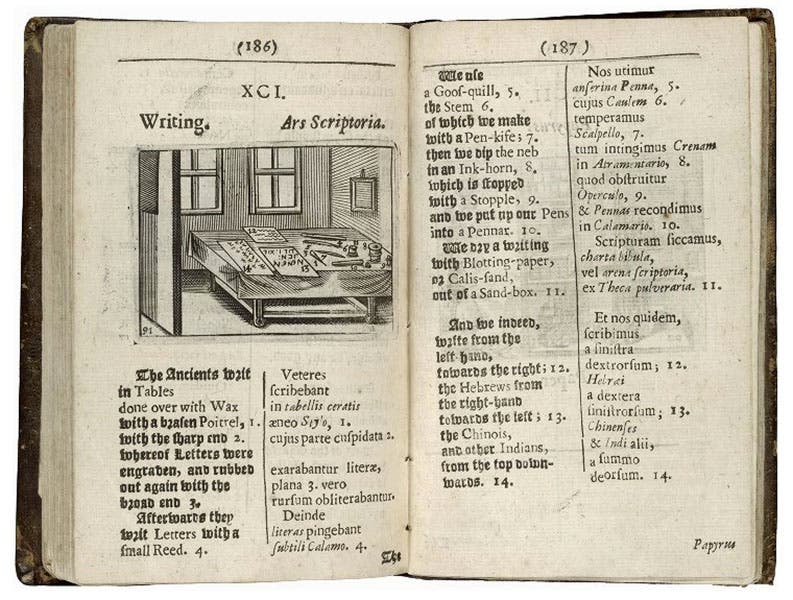 (186)
XCI.
Writing. Ars Scriptoria.
91
The Ancients writ
in Tables
done over with Wax
with a brasen Poitrel, 1.
with the sharp end 2.
whereof Letters were
engraven, and rubbed
out again with the
broad end 3.
Afterwards they
writ Letters with a
ſmall Reed. 4.
Veteres
ſcribebant
in tabellis ceratis
æneo Stylo, 1.
cujus parte cuſpidata 2.
exarabantur literæ,
plana 3. vero
rurſum obliterabantur.
Deinde
literas pingebant
ſubtili Calamo. 4.
(187)
We uſe
a Gooſ-quill, 5.
the Stem 6.
of which we make
with a Pen-kife; 7.
then we dip the neb
in an Ink-horn, 8.
which is ſtopped
with a Stopple, 9.
and we put up our Pens
into a Pennar. 10.
We dry a writing
with Blotting-paper,
or Calis-ſand,
out of a Sand-box. 11.
And we indeed,
write from the
left-hand,
towards the right; 12.
the Hebrews from
the right-hand
towards the left; 13.
the Chinois,
and other Indians,
from the top down-
wards. 14.
Nos utimur
anſerina Penna, 5.
cujus Caulem 6.
temperamus
Scalpello, 7.
tum intingimus Crenam
in Atramentario, 8.
quod obſtruitur
Operculo, 9.
& Pennas recondimus
in Calamario. 10.
Scripturam ſiccamus,
charta bibula,
vel arena ſcriptoria,
ex Theca pulveraria. 11.
Et nos quidem,
ſcribimus
a ſiniſtra
dextrorſum; 12.
Hebræi
a dextera
ſiniſtrorſum; 13.
Chinenſes
& Indi alii,
a ſummo
deorſum. 14.
Papyrus